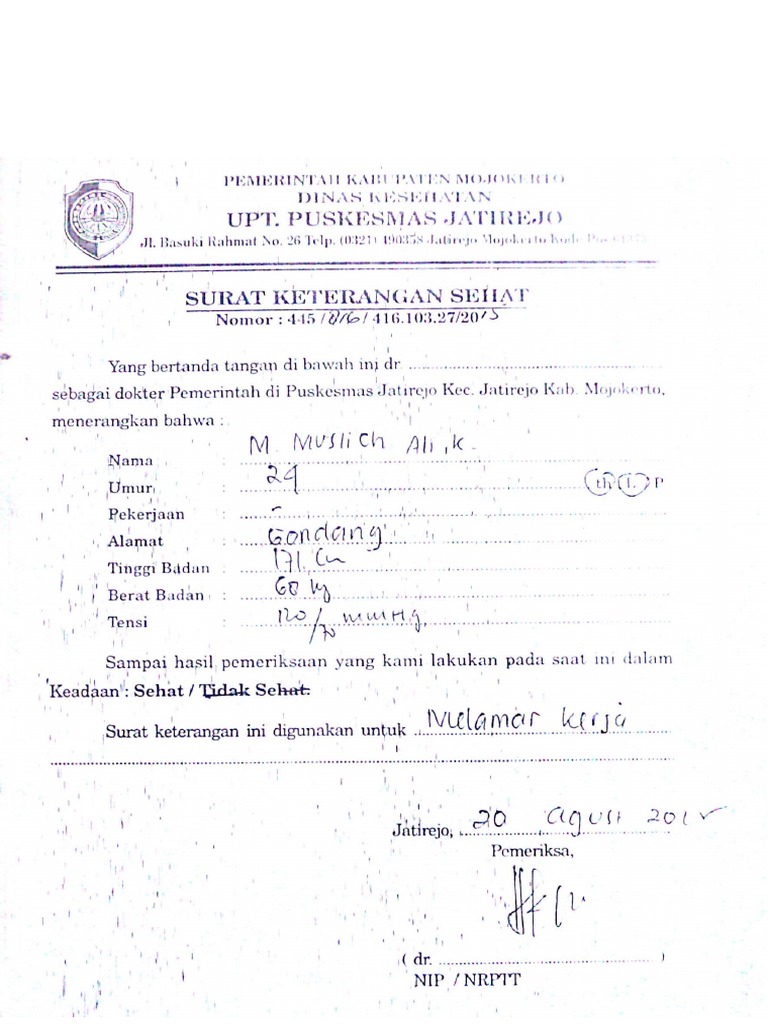 PEMERINTAH KABUPATEN MOJOKERTO
DINAS KESEHATAN
UPT. PUSKESMAS JATIREJO
Jl. Basuki Rahmat No. 26 Telp. (0321) 490378 Jatirejo Mojokerto Kode Pos
SURAT KETERANGAN SEHAT
Nomor : 445 / 816 / 416.103.27/2015
Yang bertanda tangan di bawah ini dr
sebagai dokter Pemerintah di Puskesmas Jatirejo Kec. Jatirejo Kab. Mojokerto,
menerangkan bahwa :
Nama : M. MUSLICH Ali .K.
Umur : 24 th L P
Pekerjaan : -
Alamat : Gondang
Tinggi Badan : 171 Cm
Berat Badan : 60 kg
Tensi : 120/70 mmHg
Sampai hasil pemeriksaan yang kami lakukan pada saat ini dalam
Keadaan : Sehat / Tidak Sehat.
Surat keterangan ini digunakan untuk Melamar kerja
Jatirejo, 20 Agust 2015
Pemeriksa,
( dr. )
NIP / NRPTT